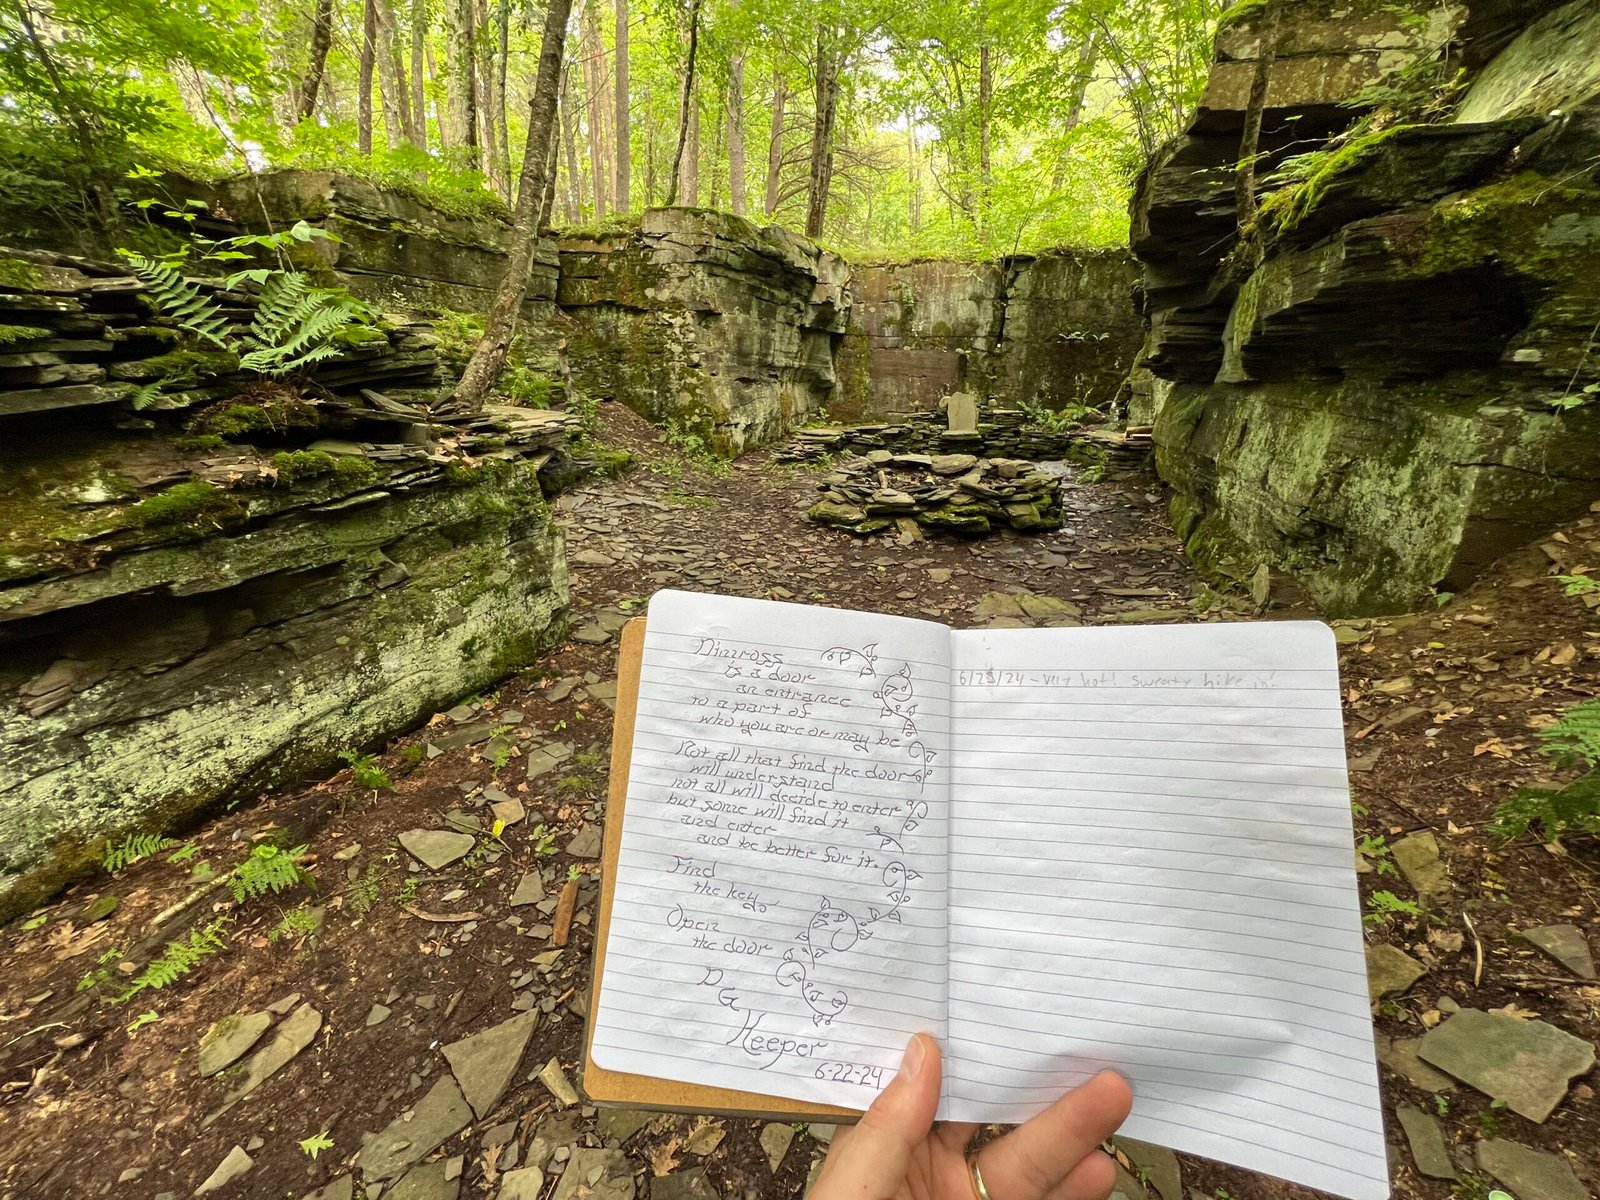 Nimross
is a door
an entrance
to a part of
who you are or may be
Not all that find the door
will understand
not all will decide to enter
but some will find it
and enter
and be better for it.
Find
the key
Open
the door
D
G
Keeper
6-22-24
6/23/24 - very hot! sweaty hike in!